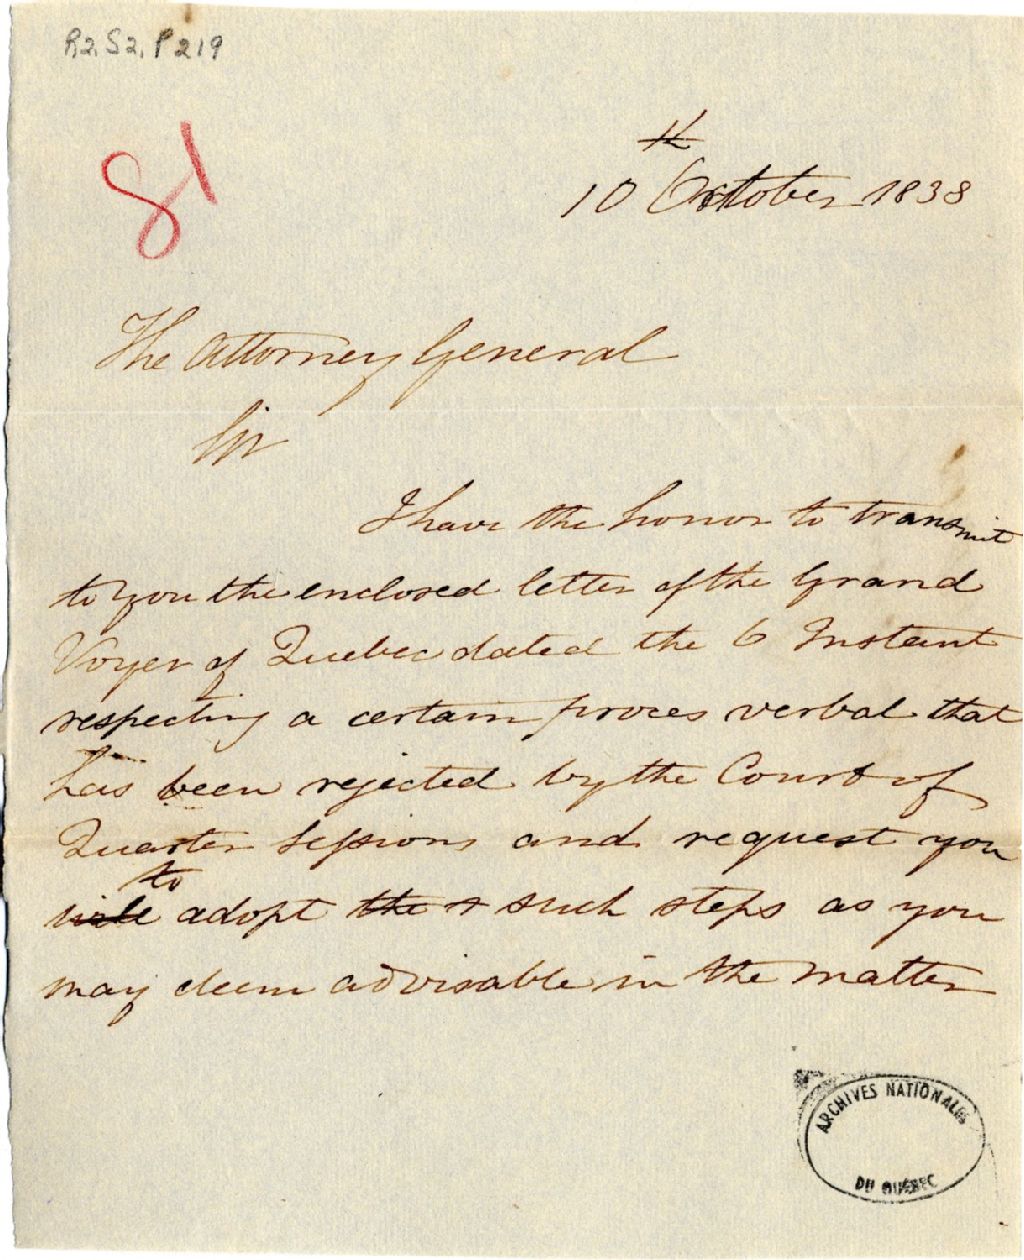 R2, S2, P219
81
10 October 1838
The Attorney General
Sir
I have the honor to transmit
to you the enclosed letter of the Grand
Voyer of Quebec dated the 6 Instant
respecting a certain proces verbal that
has been rejected by the Court of
Quarter Sessions and request you
to
adopt the such steps as you
may deem advisable in the matter
ARCHIVES NATIONALES
DU QUÉBEC